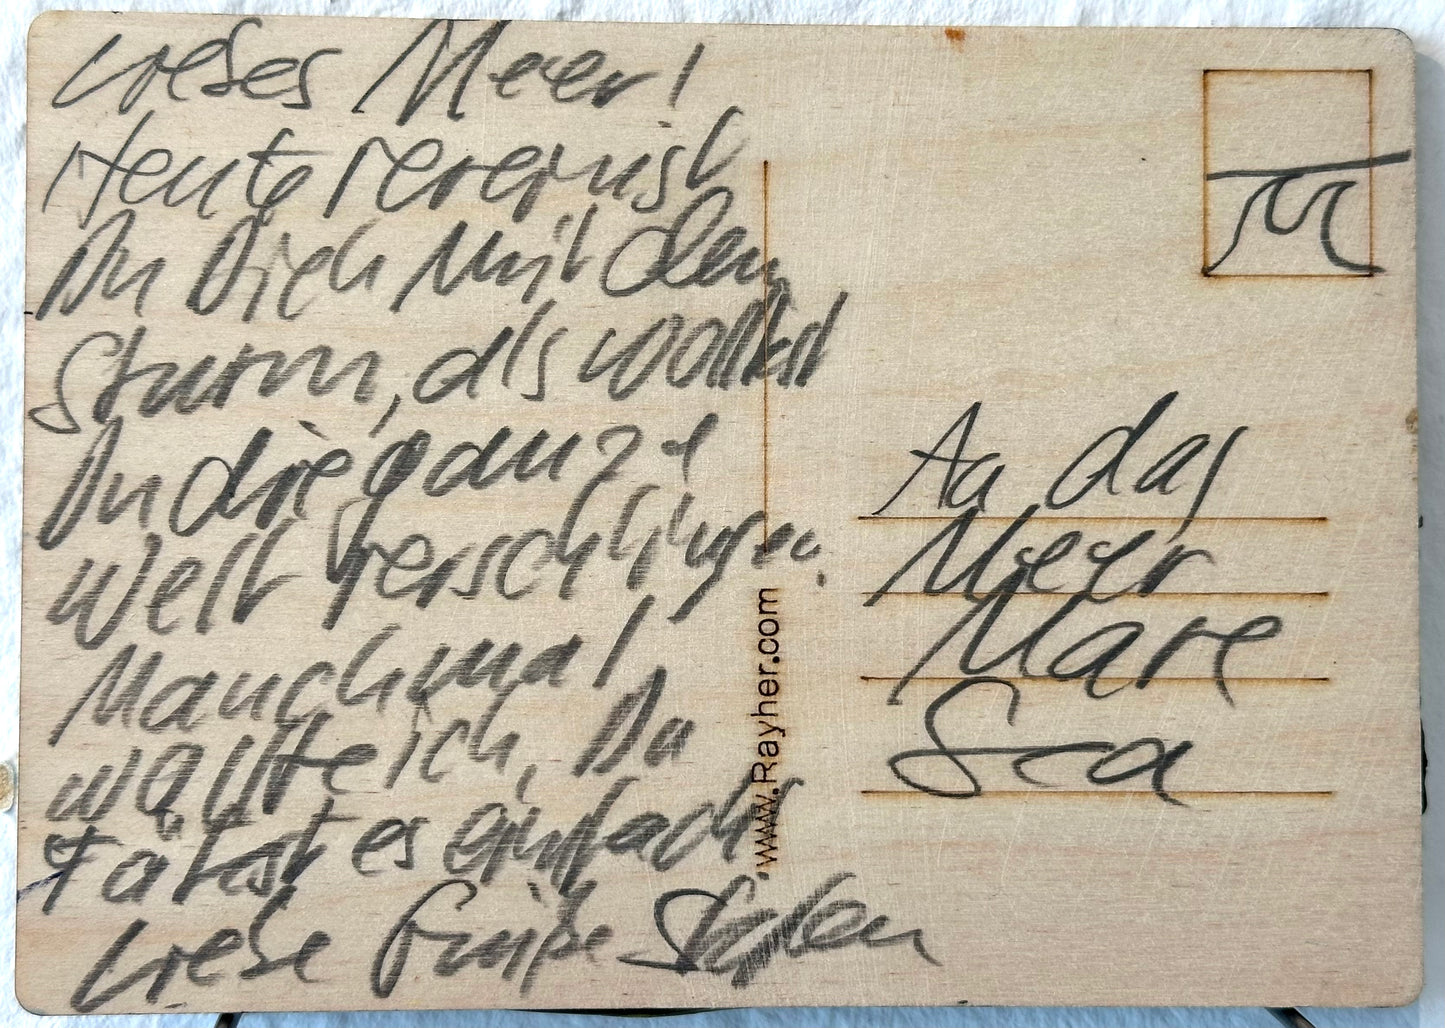 Liebes Meer!
Heute vereinst
Du Dich mit dem
Sturm, als wolltest
Du die ganze
Welt verschlingen.
Manchmal
wollte ich, Du
tätest es einfach.
Liebe Grüße Stephan
www.Rayher.com
An das
Meer
Mare
Sea